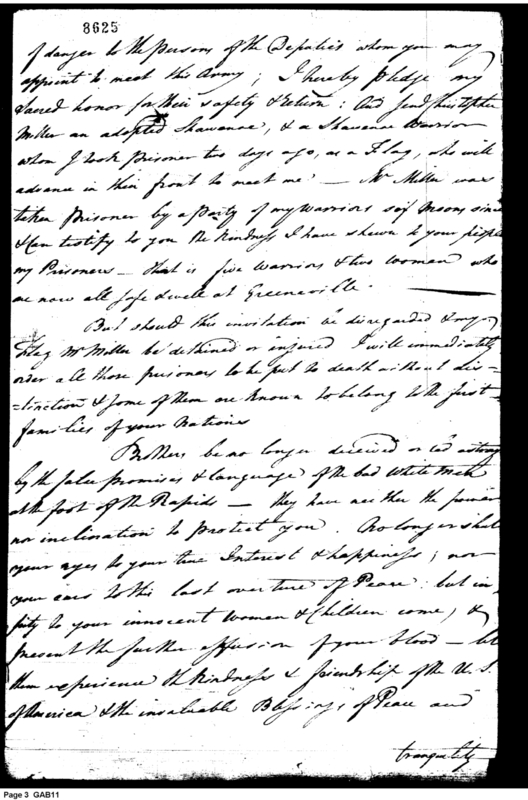 8625
of danger to the persons of the Deputies whom you may
appoint to meet this Army; I hereby pledge my
sacred honor for their safety & return: And send Christopher
Miller an adopted Shawanoe, & a Shawanoe Warrior
whom I took prisoner two days ago, as a Flag, who will
advance in their front to meet me: — Mr Miller was
taken prisoner by a party of my warriors six moons since
& can testify to you the kindness I have shewn to your people
my Prisoners — that is five warriors & two women who
are now all safe & well at Greeneville. —
But should this invitation be disregarded & my
Flag Mr Miller be detained or injured I will immediately
order all those prisoners to be put to death without dis=
=tinction & some of them are known to belong to the first
families of your Nations
Brothers be no longer deceived or led astray
by the false promises & language of the bad White Men
at the foot of the Rapids — they have neither the power
nor inclination to protect you. No longer shut
your eyes to your true Interest & happiness; nor
your ears to this last overture of Peace: but in
pity to your innocent women & Children come, &
prevent the further effusion of your blood — let
them experience the kindness & friendship of the U. S.
of America & the invaluable Blessings of Peace and
tranquility
Page 3 GAB11